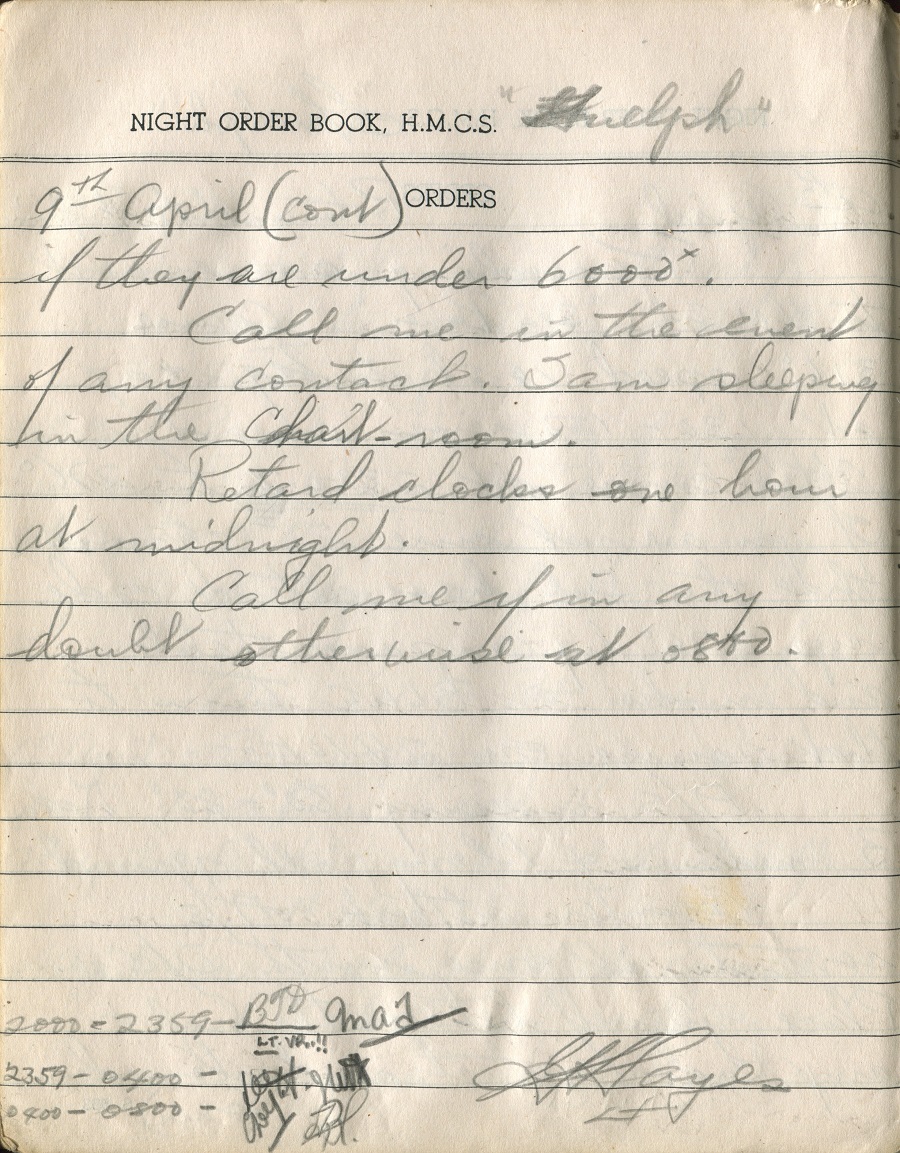 NIGHT ORDER BOOK, H.M.C.S. "Guelph"
9th April (cont) ORDERS
if they are under 6000x.
Call me in the event
of any contact. I am sleeping
in the Chart-room.
Retard clocks one hour
at midnight.
Call me if in any
doubt otherwise at 0800.
2000 - 2359 - BTD
LT. VR..!!
2359 - 0400 -
0400 - 0800 -
Hayes
Lt